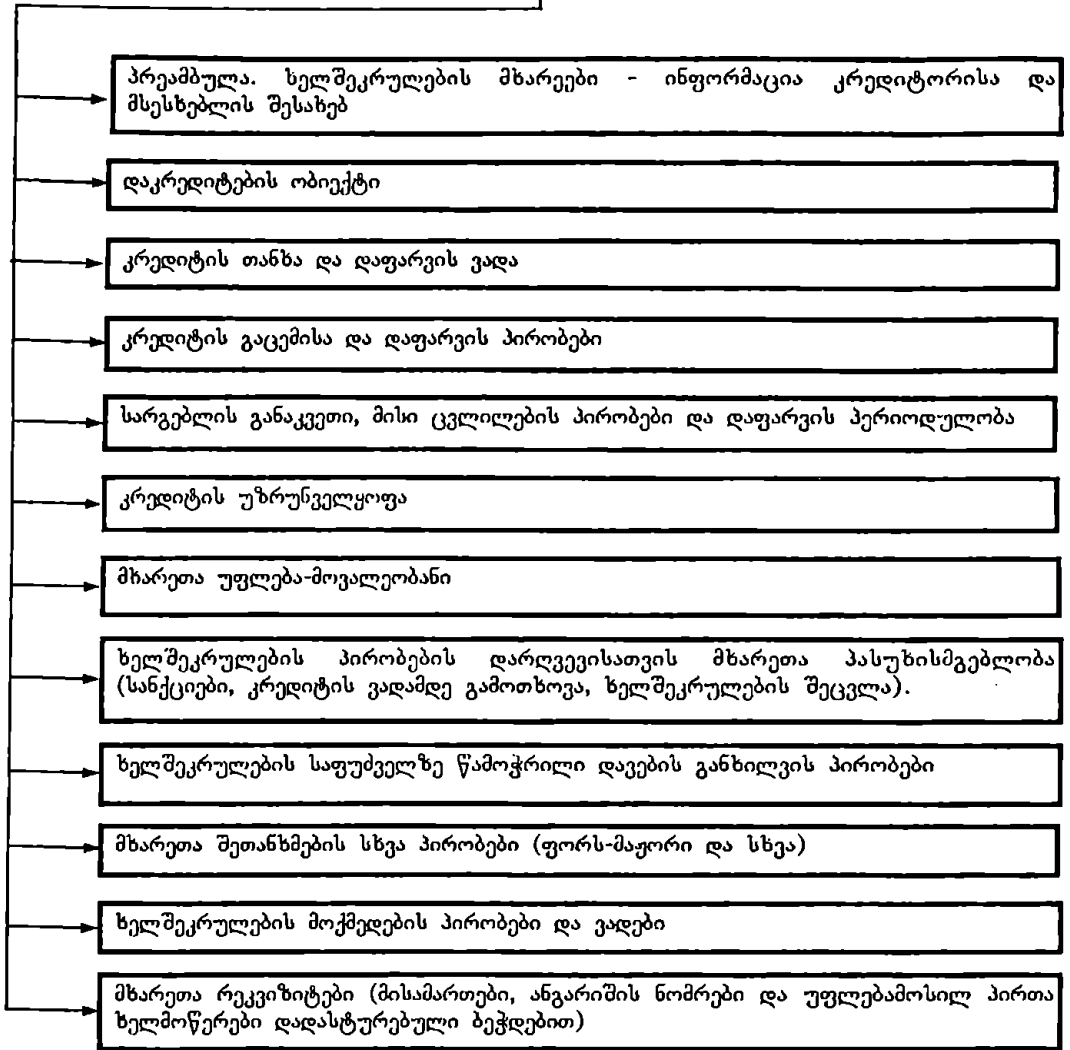 პრეამბულა. ხელშეკრულების მხარეები - ინფორმაცია კრედიტორისა და
მსესხებლის შესახებ
დაკრედიტების ობიექტი
კრედიტის თანხა და დაფარვის ვადა
კრედიტის გაცემისა და დაფარვის პირობები
სარგებლის განაკვეთი, მისი ცვლილების პირობები და დაფარვის პერიოდულობა
კრედიტის უზრუნველყოფა
მხარეთა უფლება-მოვალეობანი
ხელშეკრულების პირობების დარღვევისათვის მხარეთა პასუხისმგებლობა
(სანქციები, კრედიტის ვადამდე გამოთხოვა, ხელშეკრულების შეცვლა).
ხელშეკრულების საფუძველზე წამოჭრილი დავების განხილვის პირობები
მხარეთა შეთანხმების სხვა პირობები (ფორს-მაჟორი და სხვა)
ხელშეკრულების მოქმედების პირობები და ვადები
მხარეთა რეკვიზიტები (მისამართები, ანგარიშის ნომრები და უფლებამოსილ პირთა
ხელმოწერები დადასტურებული ბეჭდებით)